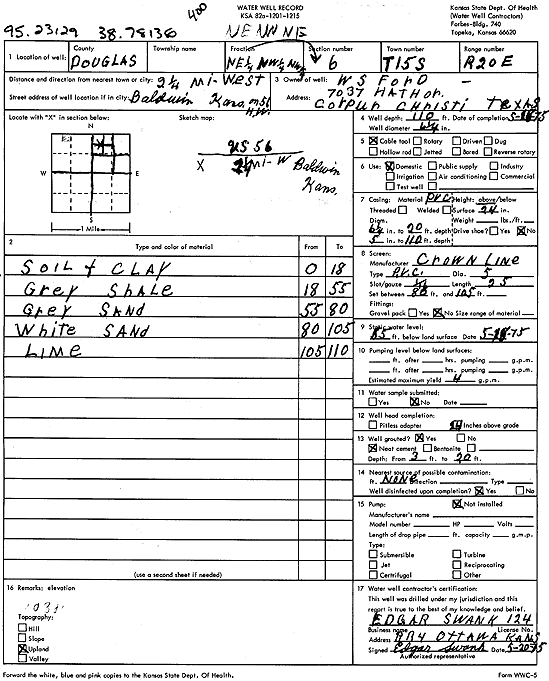 400
WATER WELL RECORD
KSA 82a-1201-1215
Kansas State Dept. Of Health
(Water Well Contractors)
Forbes-Bldg. 740
Topeka, Kansas 66620
95.23129 38.78136
NENNNE
1 Location of well: County DOUGLAS Township name Fraction NE¼ NW¼ NW¼ Section number 6 Town number T15S Range number R20E
Distance and direction from nearest town or city: 2¼ Mi-West
Street address of well location if in city: Baldwin Kans. on 56 H.W.
3 Owner of well: WS FORD
Address: 7037 HATHOR.
Corpus Christi TEXAS
Locate with "X" in section below:
Sketch map:
N
W
E
S
1 Mile
US 56
X 2¼ Mi-W Baldwin
Kans.
4 Well depth: 110 ft. Date of completion 5-18-75
Well diameter 6¼ in.
5 Cable tool Rotary Driven Dug
Hollow rod Jetted Bored Reverse rotary
6 Use: Domestic Public supply Industry
Irrigation Air conditioning Commercial
Test well
7 Casing: Material P.V.C. Height: above/below
Threaded Welded Surface 24 in.
Diam. Weight lbs./ft.
6¼ in. to 20 ft. depth Drive shoe? Yes No
5 in. to 110 ft. depth
2 Type and color of material From To
SOIL + CLAY 0 18
Grey SHALE 18 55
Grey SAND 55 80
White SAND 80 105
LIME 105 110
(use a second sheet if needed)
8 Screen:
Manufacturer CROWN LINE
Type P.V.C. Dia. 5
Slot/gauze Length 25
Set between 80 ft. and 105 ft.
Fittings:
Gravel pack Yes No Size range of material
9 Static water level:
85 ft. below land surface Date 5-18-75
10 Pumping level below land surfaces:
ft. after hrs. pumping g.p.m.
ft. after hrs. pumping g.p.m.
Estimated maximum yield 4 g.p.m.
11 Water sample submitted:
Yes No Date
12 Well head completion:
Pitless adapter 24 Inches above grade
13 Well grouted? Yes No
Neat cement Bentonite
Depth: From 3 ft. to 20 ft.
14 Nearest source of possible contamination:
ft. NONE Direction Type
Well disinfected upon completion? Yes No
15 Pump: Not installed
Manufacturer's name
Model number HP Volts
Length of drop pipe ft. capacity g.m.p.
Type:
Submersible Turbine
Jet Reciprocating
Certrifugal Other
16 Remarks: elevation
Topography:
Hill
Slope
Upland
Valley
17 Water well contractor's certification:
This well was drilled under my jurisdiction and this
report is true to the best of my knowledge and belief.
EDGAR SWANK 124
Business name License No.
Address RR4 OTTAWA KANS
Signed Edgar Swank Date 5-20-75
Authorized representative
Forward the white, blue and pink copies to the Kansas State Dept. Of Health.
Form WWC-5